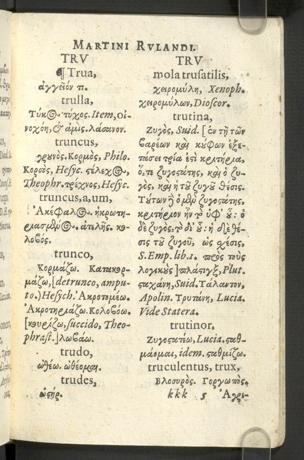 MARTINI RVLANDI.
TRV
¶ Trua,
ἀγγεῖόν τι.
trulla,
Τύκ⊙· τύχος. Item, οἰ-
νοχόη, & ἀμὶς. λάσανον.
truncus,
Κορμὸς, Philo.
Κορσὸς, Hesyc. στέλεχ⊙,
Theophr. τρέχνος, Hesyc.
truncus, a, um,
Ἀκέφαλ⊙· ἠκρωτη-
ριασμὸς. ἀτελής. κο-
λοβός.
trunco,
Κορμάζω. Κατακορ-
μάζω, [detrunco, ampu-
to,) Hesych. Ἀκροτομέω.
Ἀκρωτηριάζω. Κολοβόω.
succido, Theo-
phrast. ] λωβάω.
trudo,
ὠθέω. ὠθέομαι.
trudes,
TRV
mola trusatilis,
χειρομύλη, Xenoph.
χειρομύλων, Dioscor.
trutina,
Ζυγὸς, Suid. [ ἐν ᾗ τῶν
βαρέων καὶ κύφων ἐξε-
τάσει τρία ἐστὶ κριτήρια,
ὅ, τι ζυγοστάτης, καὶ ὁ ζυ-
γὸς, καὶ ἡ τοῦ ζυγοῦ θέσις.
Τούτων ὁ μὲν ζυγοστάτης,
κριτήριον
ὁ δὲ ζυγὸς, ἡ δὲ θέ-
σις τοῦ ζυγοῦ, ὡς σχέσις,
S. Emp. lib. 1. πρὸς τοὺς
λογικοὺς ] πλάστιγξ, Plut.
σταχάνη, Suid. Τάλαντον,
Apolin. Τρυτάνη, Lucia.
Vide Statera.
trutinor,
Ζυγοστατέω, Lucia. σταθ-
μάομαι, idem. σταθμίζω.
truculentus, trux,
Βλοσυρὸς. Γοργωπὸς,
kkk 5 Ἄγρι-